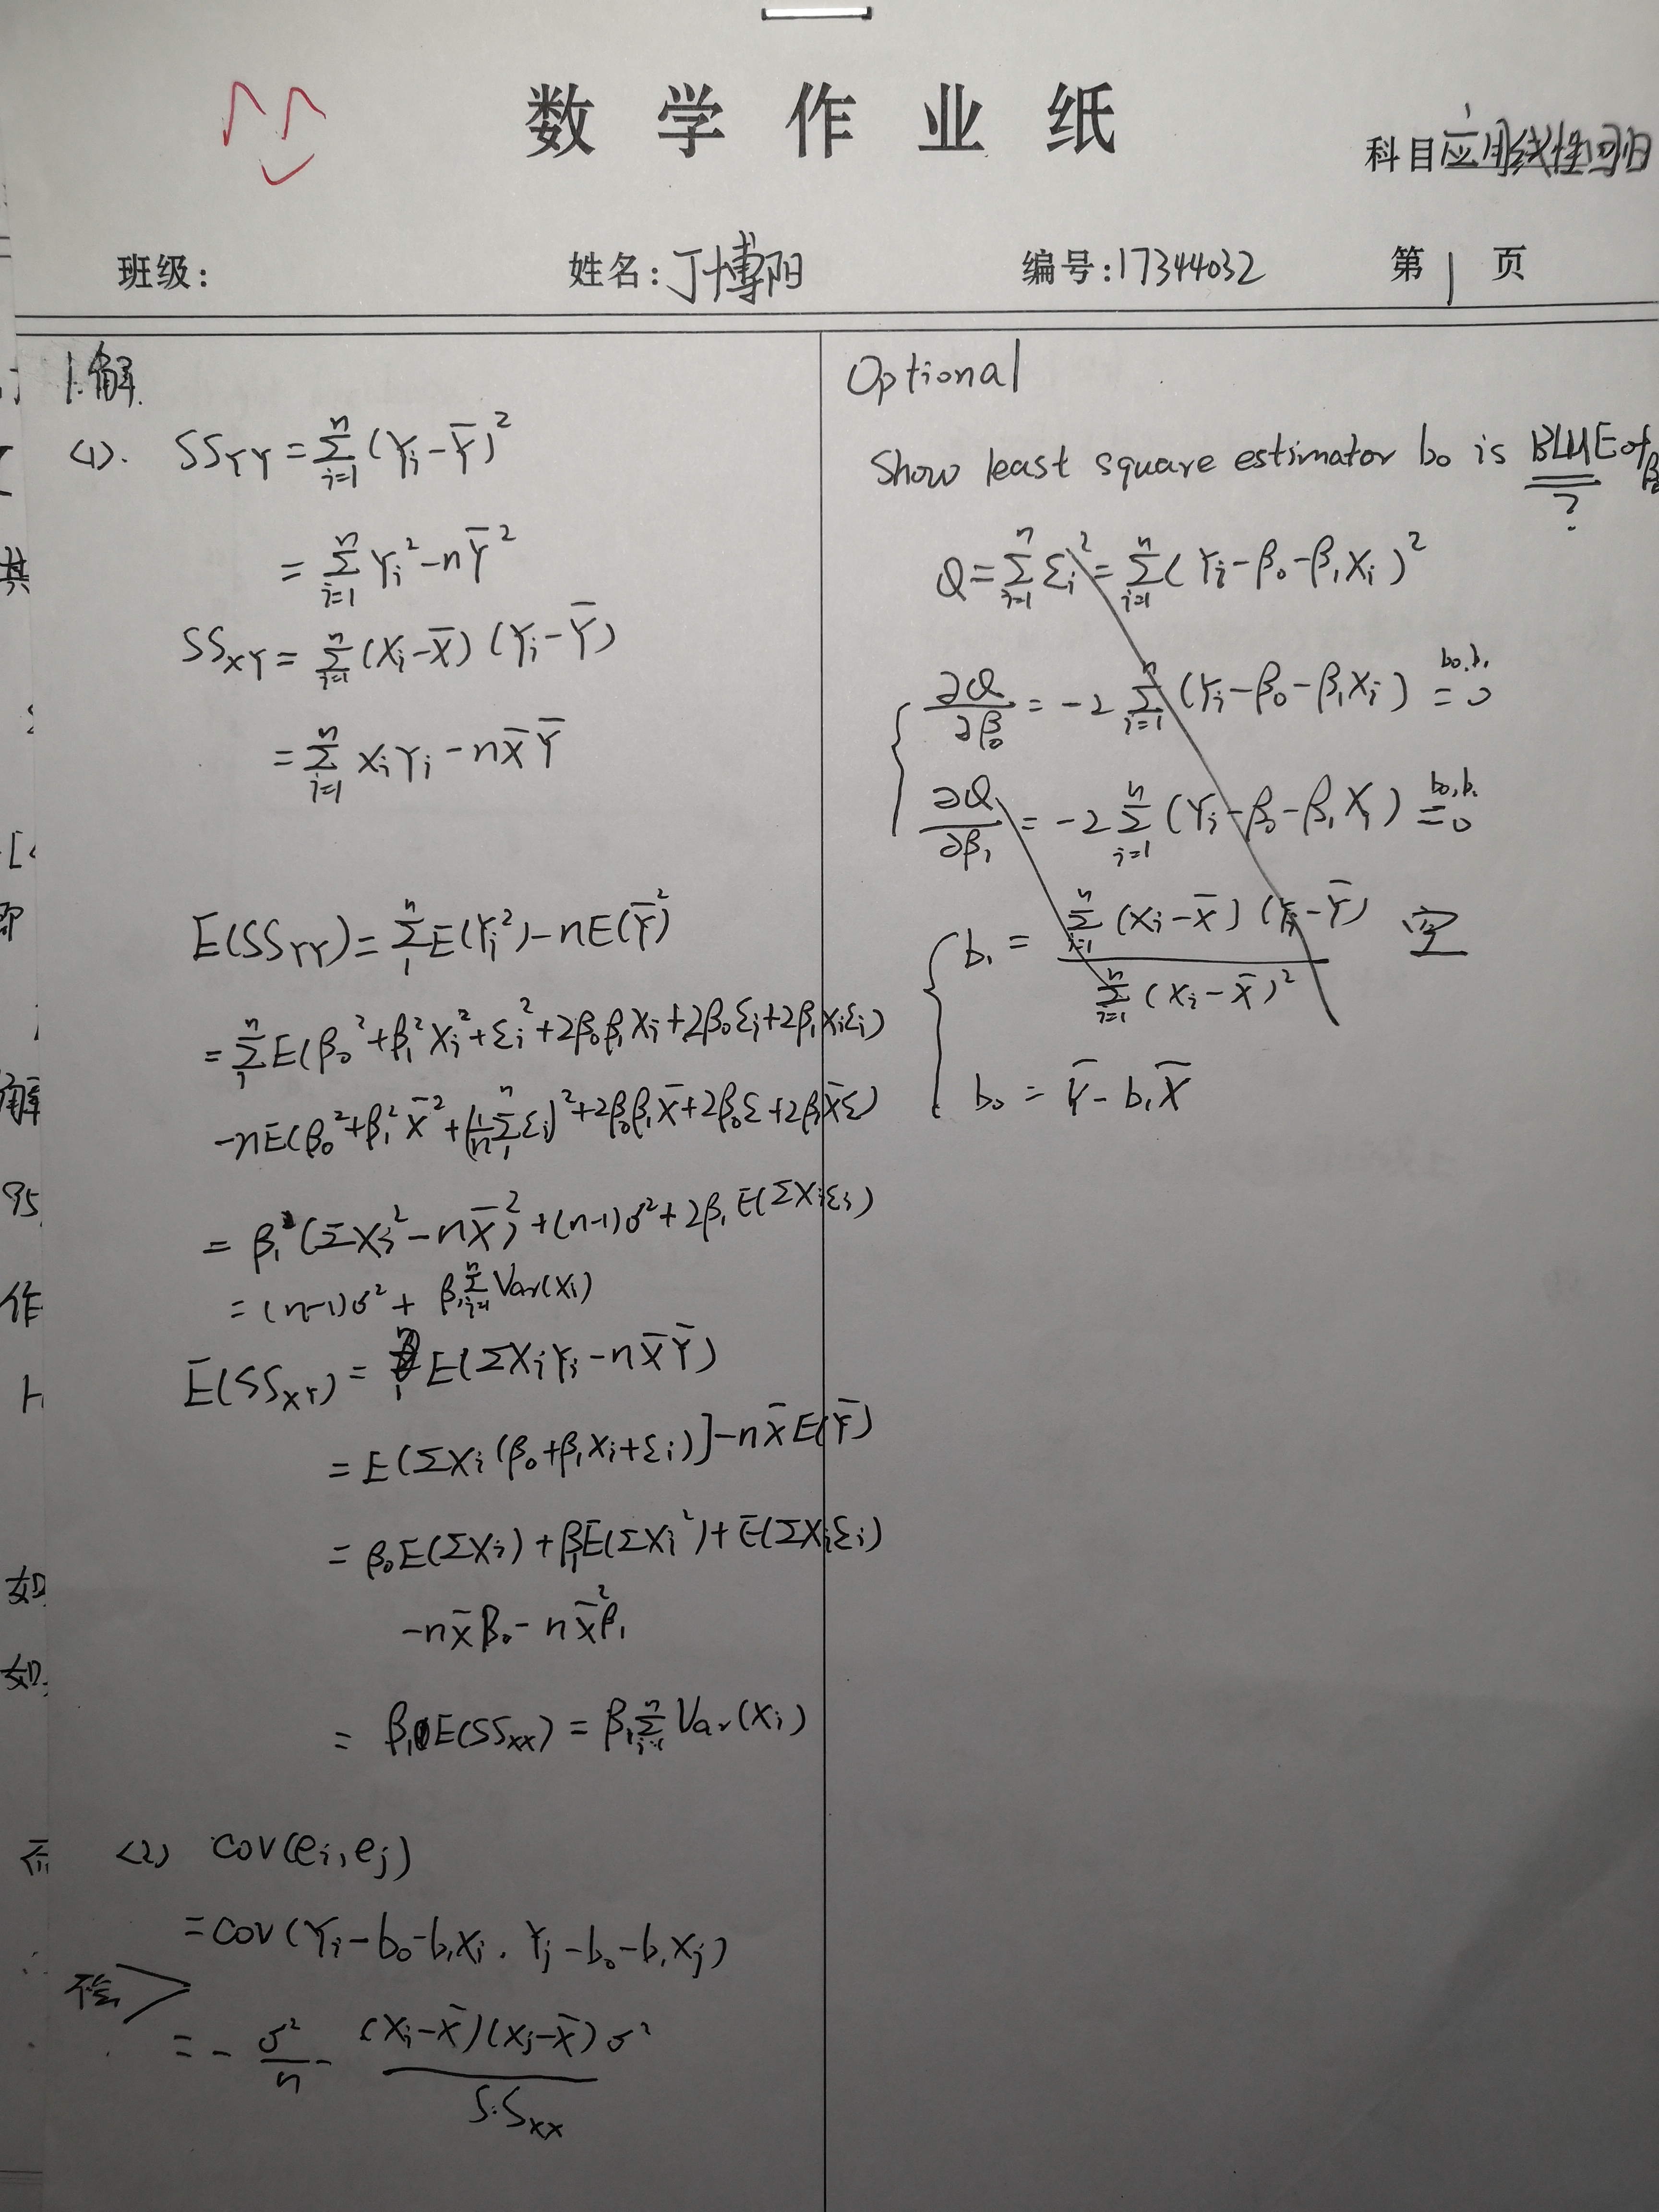 数学作业纸
科目 应用线性回归
班级: 姓名: 丁博阳 编号: 17344032 第 1 页
1.解.
(1). SS_YY = Σ_{i=1}^n (Y_i - Ȳ)²
= Σ_{i=1}^n Y_i² - nȲ²
SS_XY = Σ_{i=1}^n (X_i - X̄)(Y_i - Ȳ)
= Σ_{i=1}^n X_i Y_i - nX̄Ȳ
E(SS_YY) = Σ_1^n E(Y_i²) - nE(Ȳ²)
= Σ_1^n E(β₀² + β₁²X_i² + ε_i² + 2β₀β₁X_i + 2β₀ε_i + 2β₁X_iε_i)
- nE(β₀² + β₁²X̄² + (1/n Σ_1^n ε_i)² + 2β₀β₁X̄ + 2β₀ε + 2β₁X̄ε)
= β₁²(ΣX_i² - nX̄²) + (n-1)σ² + 2β₁E(ΣX_iε_i)
= (n-1)σ² + β₁Σ_{i=1}^n Var(X_i)
E(SS_XY) = E(ΣX_iY_i - nX̄Ȳ)
= E(ΣX_i(β₀ + β₁X_i + ε_i)] - nX̄E(Ȳ)
= β₀E(ΣX_i) + β₁E(ΣX_i²) + E(ΣX_iε_i)
- nX̄β₀ - nX̄²β₁
= β₁E(SS_XX) = β₁Σ_{i=1}^n Var(X_i)
(2) cov(e_i, e_j)
= cov(Y_i - b₀ - b₁X_i, Y_j - b₀ - b₁X_j)
不会
= - σ²/n - (X_i - X̄)(X_j - X̄)σ² / S.S_XX
Optional
Show least square estimator b₀ is BLUE of β₀
?
Q = Σ_{i=1}^n ε_i² = Σ_{i=1}^n (Y_i - β₀ - β₁X_i)²
∂Q/∂β₀ = -2 Σ_{i=1}^n (Y_i - β₀ - β₁X_i) = 0 b₀,b₁
∂Q/∂β₁ = -2 Σ_{i=1}^n (Y_i - β₀ - β₁X_i) = 0 b₀,b₁
b₁ = Σ_{i=1}^n (X_i - X̄)(Y_i - Ȳ) / Σ_{i=1}^n (X_i - X̄)² 空
b₀ = Ȳ - b₁X̄